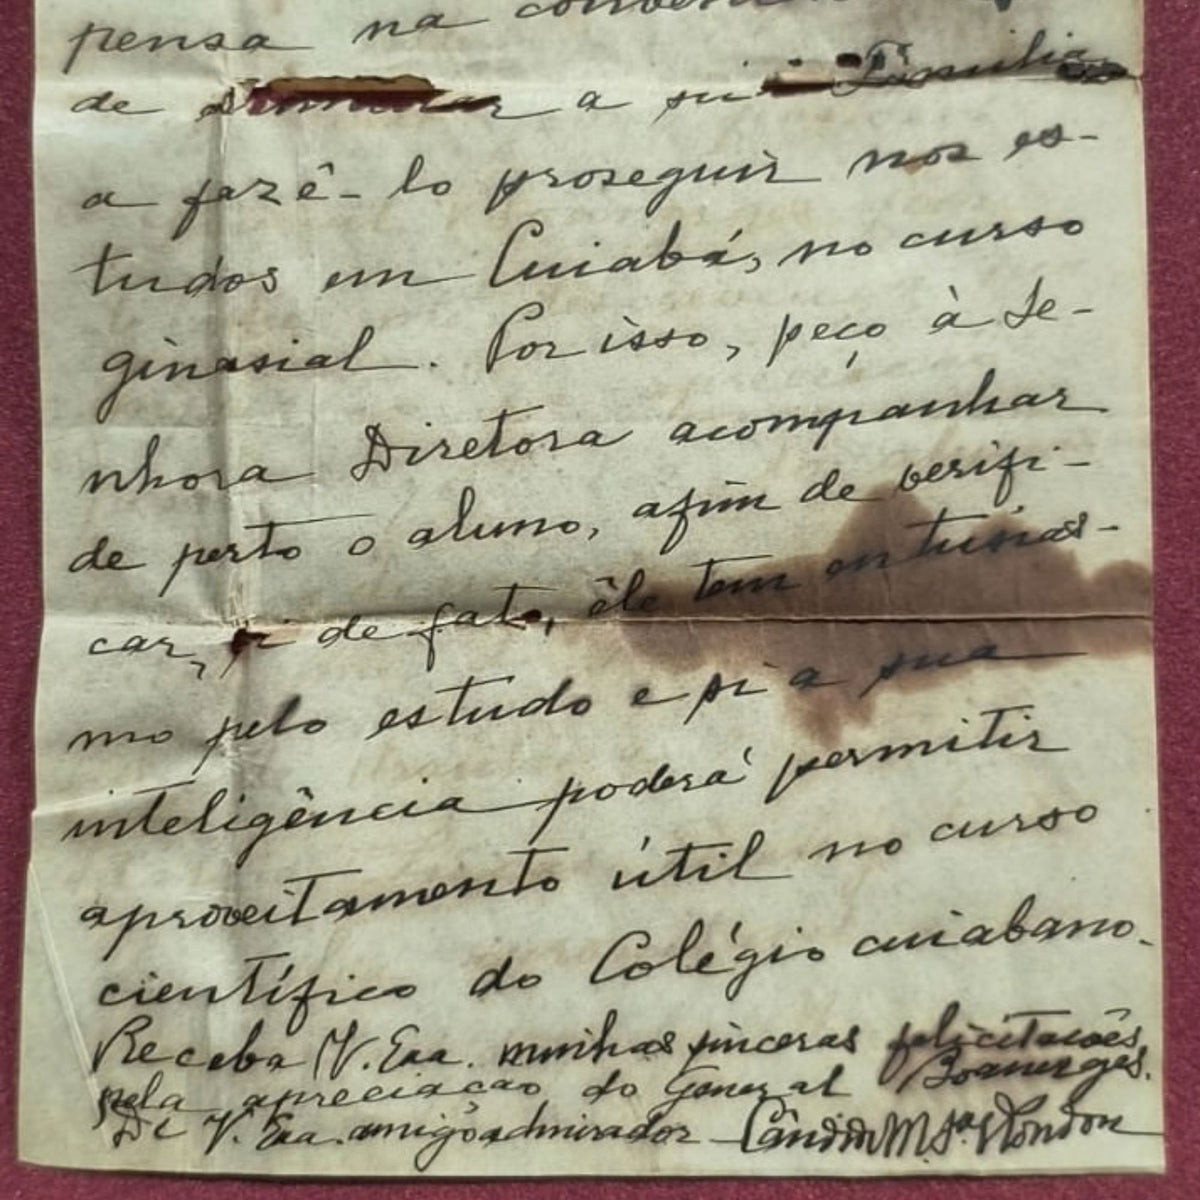 pensa na
de animar a sua Família
a fazê-lo proseguir nos es-
tudos em Cuiabá, no curso
ginasial. Por isso, peço à Se-
nhora Diretora acompanhar
de perto o aluno, afim de verifi-
car, si de fato, êle tem entusias-
mo pelo estudo e si a sua
inteligência poderá permitir
aproveitamento útil no curso
científico do Colégio cuiabano.
Receba V. Exa. minhas sinceras felicitacões
pela apreciacão do General Boanerges.
De V. Exa. amigo admirador Cândido M. S.ª Rondon